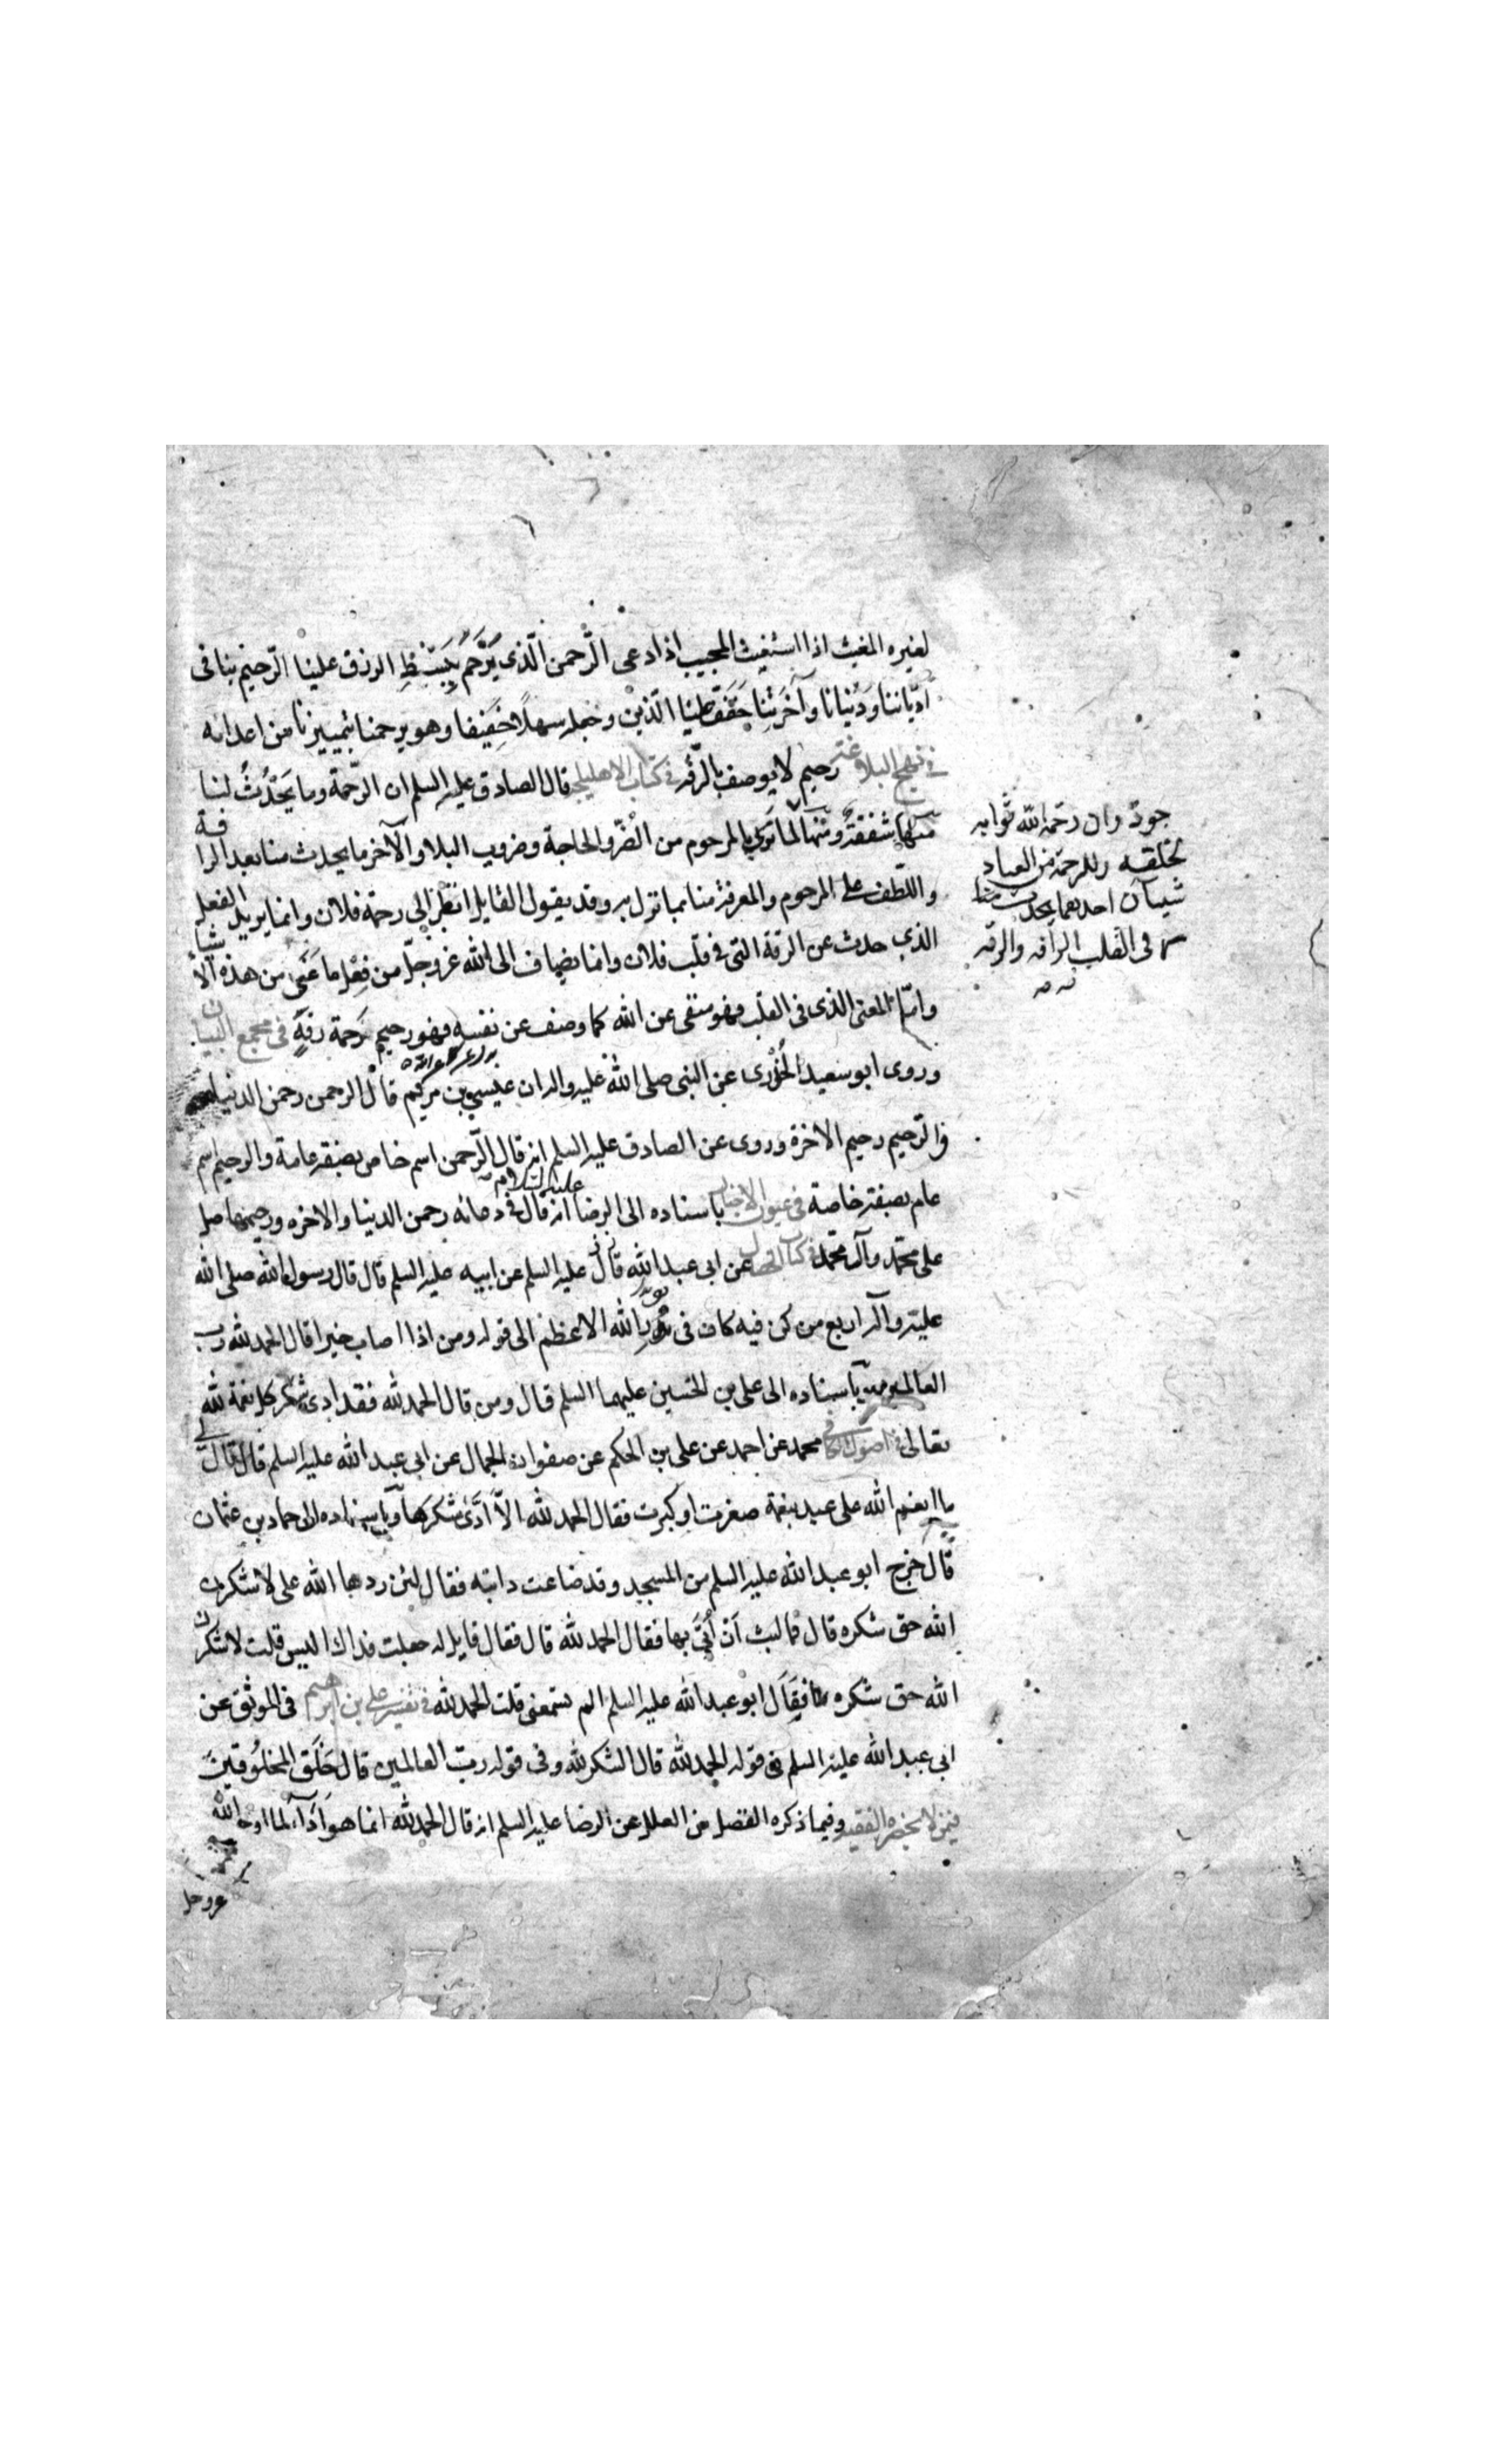 لغيره المغيث اذا استغيث المجيب اذا دعى الرَّحمن الَّذى يَرْحَمُ بِبَسْطِ الرزق علينا الرّحيم بنا فى
أدْيَاننا وَدُنْيانا وآخِرَتِنا خَفَّفَ علينا الّدّين وجعله سهلًا خَفِيفا وهو يرحمنا بتمييزنا من اعدائه
فى نهج البلاغة رحيم لا يوصف بالرّقّه فى كتاب الاهليلجه قال الصادق عليه السلم ان الرّحمة وما يَحْدُثُ لنا
منها شفقةٌ ومنها لما ترى بالمرحوم من الضُرّ والحاجة وضروب البلاء والآخر ما يحدث منا بعد الرافة
واللّطف على المرحوم والمعرفة منا بما نزل به وقد يقول القايل انْظُر الى رحمة فلان وانما يريد الفعل
الذى حدث عن الرقة التى فى قلب فلان وانما يضاف الى الله عزوجلّ من فِعْل ما عَنّى من هذه الاشيآ
وامّا المعنى الذى فى القلب فهو منفى عن الله كما وصف عن نفسه فهو رحيم لا رحمة رقةٍ فى مجمع البيان
وروى ابو سعيد الخُدْرى عن النبى صلى الله عليه واله ان عيسى بن مريم قال الرحمن رحمن الدنيا
والرّحيم رحيم الاخرة وروى عن الصادق عليه السلم انه قال الرّحمن اسم خاص بصفة عامة والرحيم اسم
عام بصفة خاصة فى عيون الاخبار باسناده الى الرضا عليه السلام انه قال فى دعائه رحمن الدنيا والاخره ورحيمهما صل
على محمّد وآل محمّد فى كتاب الخصال عن ابى عبد الله عليه السلم عن ابيه عليه السلم قال قال رسول الله صلى الله
عليه وآله اربع من كن فيه كان فى نور الله الاعظم الى قوله ومن اذا اصاب خيرا قال الحمد لله رب
العالمين وباسناده الى على بن الحسين عليهما السلم قال ومن قال الحمد لله فقد ادى شكر كل نعمة لله
تعالى فى اصول الكافى محمد عن احمد عن على بن الحكم عن صفوان الجمال عن ابى عبد الله عليه السلم قال قال لى
ما انعم الله على عبد بنعمة صغرت او كبرت فقال الحمد لله الاّ ادَّى شكرها وباسناده الى حماد بن عثمان
قال خرج ابو عبد الله عليه السلم من المسجد وقد ضاعت دابته فقال لئن ردها الله على لاشكرن
الله حق شكره قال فما لبث أن أُتِىَ بها فقال الحمد لله قال فقال قايل له جعلت فداك اليس قلت لاشكرن
الله حق شكره فقال ابو عبد الله عليه السلم الم تسمعنى قلت الحمد لله فى تفسير على بن ابرهيم فى الموثق عن
ابى عبد الله عليه السلم فى قوله الحمد لله قال الشكر لله وفى قوله ربّ العالمين قال خَلَق المخلُوقينَ
فيمن لا يحضره الفقيه وفيما ذكره الفضل من العلل عن الرضا عليه السلم انه قال الحمد لله انما هو أدآء لما اوجب الله
عزوجل
جودّ وان رحمة الله ثوابه
لخلقه وللرحمة من العباد
شيآن احدهما يحدث
فى القلب الرافه والرقه